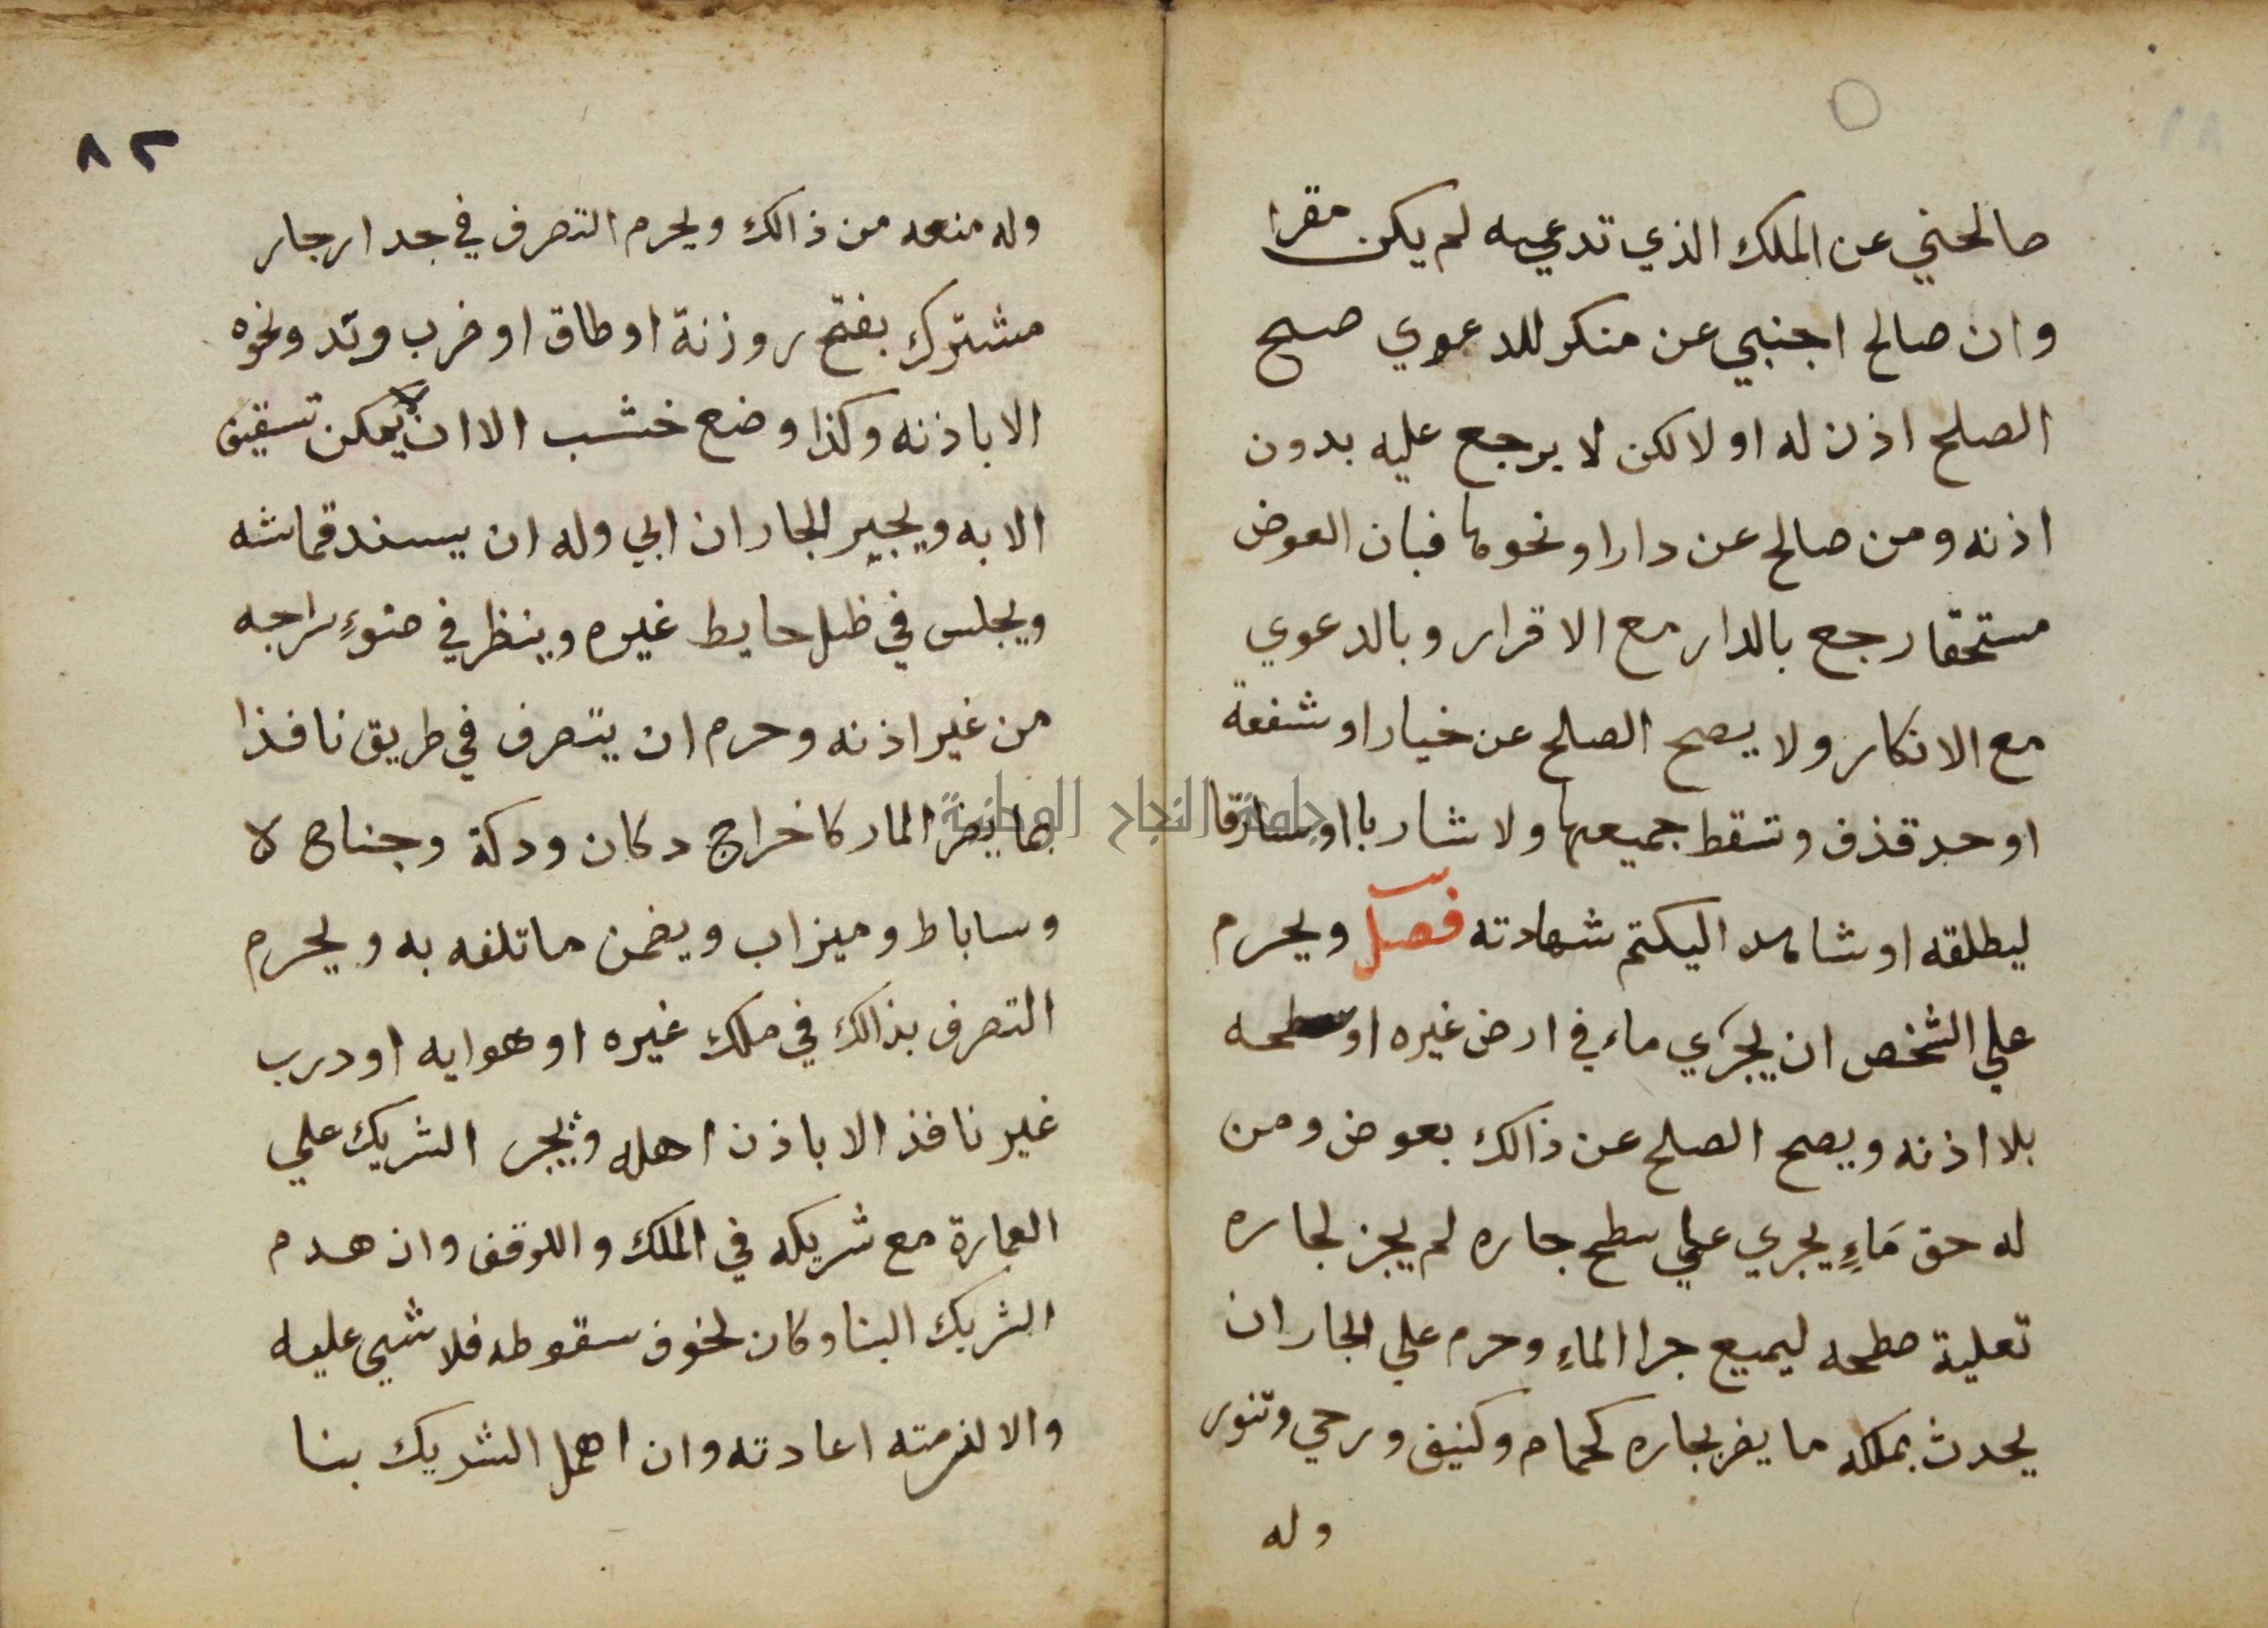 صالحني عن الملك الذي تدعيه لم يكن مقرا
وان صالح اجنبي عن منكر للدعوي صح
الصلح اذن له او لا لكن لا يرجع عليه بدون
اذنه ومن صالح عن دار او نحوها فبان العوض
مستحقا رجع بالدار مع الاقرار وبالدعوي
مع الانكار ولا يصح الصلح عن خيار او شفعة
او حد قذف وتسقط جميعها ولا شاربا او سارقا
ليطلقه او شاهدا ليكتم شهادته فصل ويحرم
علي الشخص ان يجري ماء في ارض غيره او سطحه
بلا اذنه ويصح الصلح عن ذالك بعوض ومن
له حق ماءٍ يجري علي سطح جاره لم يجز لجاره
تعلية صطحه ليميع جرا الماءِ وحرم علي الجار ان
يحدث بملكه ما يضر بجاره كحمام وكنيف ورحي وتنور
وله
٨٢
وله منعه من ذالك ويحرم التصرف في جدار جار
مشترك بفتح روزنة او طاق او ضرب وتد ونحوه
الا باذنه وكذا وضع خشب الا ان لا يمكن تسقيف
الا به ويجبر الجار ان ابي وله ان يسند قماشه
ويجلس في ظل حايط غيره وينظر في ضوءِ سراجه
من غير اذنه وحرم ان يتصرف في طريق نافذا
بما يضر المار كاخراج دكان ودكة وجناح لا
وساباط وميزاب ويضمن ما تلفه به ويحرم
التصرف بذالك في ملك غيره او هوايه او درب
غير نافذ الا باذن اهله ويجبر الشريك علي
العمارة مع شريكه في الملك والوقف وان هدم
الشريك البنا وكان لخوف سقوطه فلا شي عليه
والا لزمته اعادته وان اهمل الشريك بنا
جامعة النجاح الوطنية